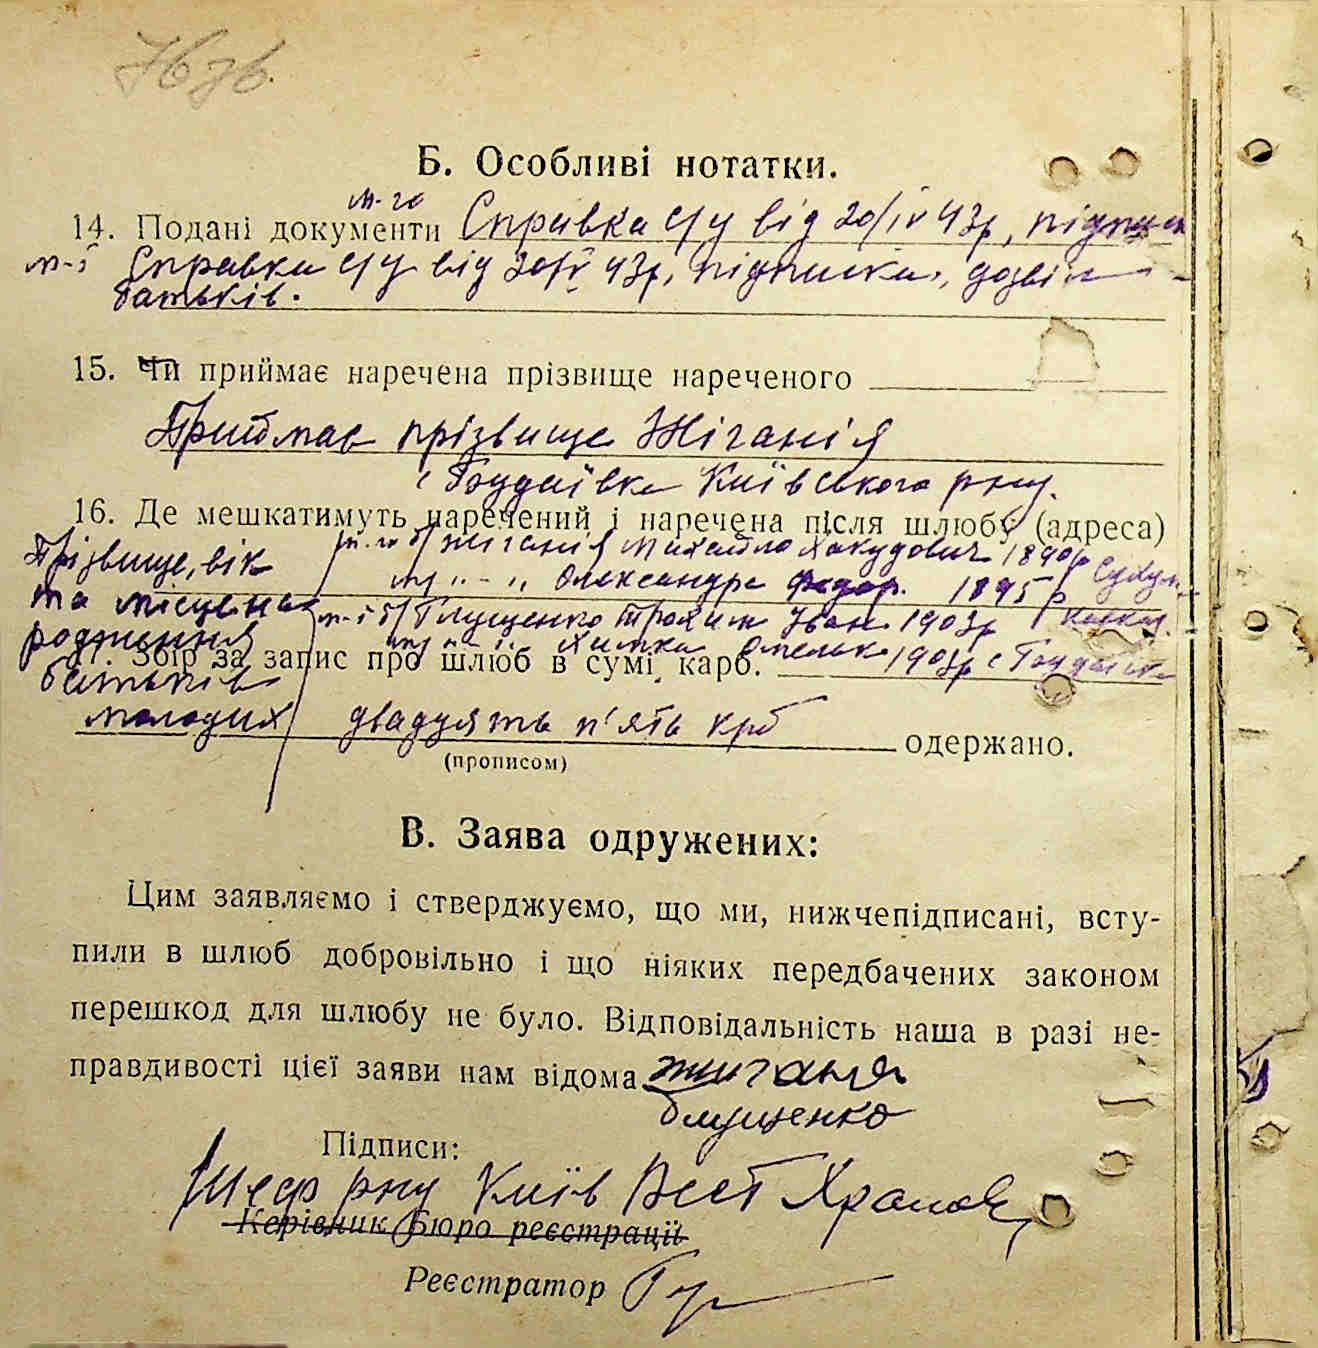 Б. Особливі нотатки.
м-го
14. Подані документи Справка с/у від 20/IV 43р, підписк
м-ї Справка с/у від 30/IV 43р, підписка, дозвіл
батьків.
15. Чи приймає наречена прізвище нареченого
Приймає прізвище Жіганія
с Гоудаївка Київського рну.
16. Де мешкатимуть наречений і наречена після шлюбу (адреса)
Прізвище, вік
та місцена
родження
батьків
молодих
м-го б/ Жіганія Михайло 1890р
м/ " - " Олександра Федор. 1895р
м-ї б/ Глущенко Трохим Іван 1903р
м/ Химка Омельк 1903р с
17. Збір за запис про шлюб в сумі карб.
двадцять п'ять крб одержано.
(прописом)
В. Заява одружених:
Цим заявляємо і стверджуємо, що ми, нижчепідписані, всту-
пили в шлюб добровільно і що ніяких передбачених законом
перешкод для шлюбу не було. Відповідальність наша в разі не-
правдивості цієї заяви нам відома Жигания
Глущенко
Підписи:
Шеф рну Київ Вест
Керівник Бюро реєстрації
Реєстратор